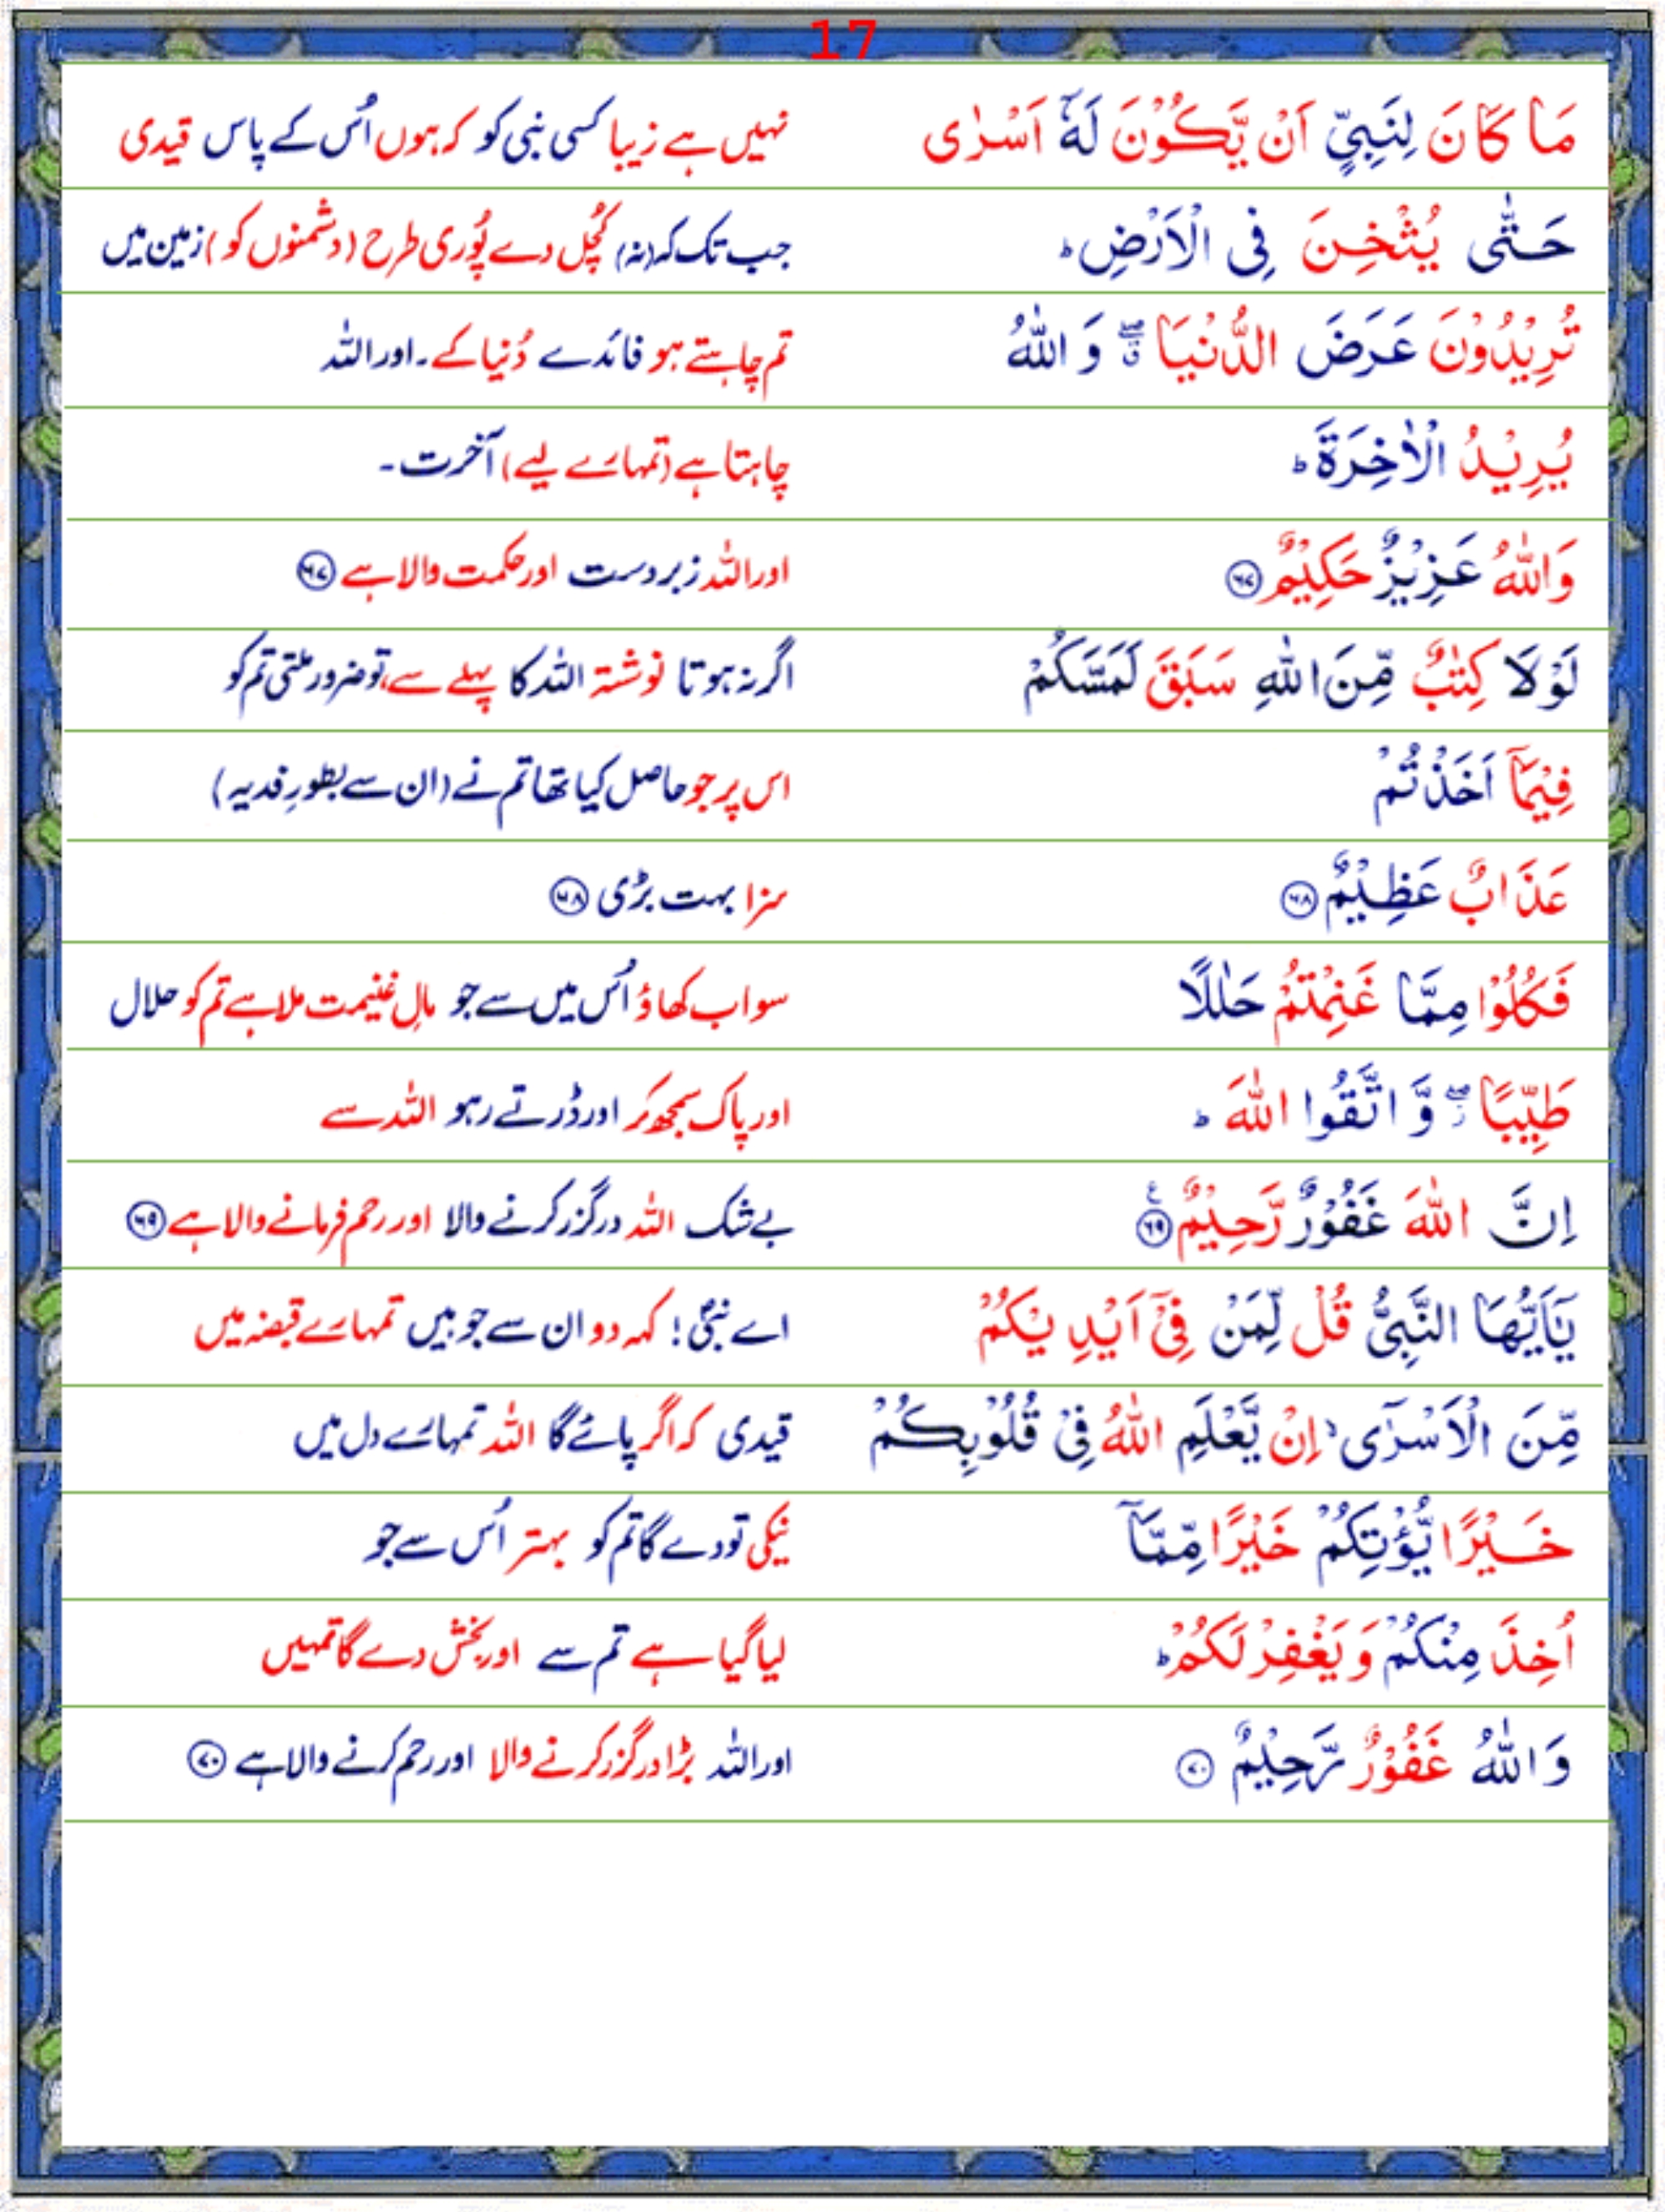 17
مَا كَانَ لِنَبِيٍّ اَنْ يَّكُوْنَ لَهٗٓ اَسْرٰى نہیں ہے زیبا کسی نبی کو کہ ہوں اُس کے پاس قیدی
حَتّٰى يُثْخِنَ فِى الْاَرْضِ ؕ جب تک کہ (نہ) کُچل دے پُوری طرح (دشمنوں کو) زمین میں
تُرِيْدُوْنَ عَرَضَ الدُّنْيَا ۖۗ وَ اللّٰهُ تم چاہتے ہو فائدے دُنیا کے۔ اور اللہ
يُرِيْدُ الْاٰخِرَةَ ؕ چاہتا ہے (تمہارے لیے) آخرت۔
وَاللّٰهُ عَزِيْزٌ حَكِيْمٌ ﴿۶۷﴾ اور اللہ زبردست اور حکمت والا ہے ﴿۶۷﴾
لَوْلَا كِتٰبٌ مِّنَ اللّٰهِ سَبَقَ لَمَسَّكُمْ اگر نہ ہوتا نوشتہ اللہ کا پہلے سے، تو ضرور ملتی تم کو
فِيْمَاۤ اَخَذْتُمْ اس پر جو حاصل کیا تھا تم نے (ان سے بطورِ فدیہ)
عَذَابٌ عَظِيْمٌ ﴿۶۸﴾ سزا بہت بڑی ﴿۶۸﴾
فَكُلُوْا مِمَّا غَنِمْتُمْ حَلٰلًا سو اب کھاؤ اُس میں سے جو مالِ غنیمت ملا ہے تم کو حلال
طَيِّبًا ۖ ۗ وَّ اتَّقُوا اللّٰهَ ؕ اور پاک سمجھ کر اور ڈرتے رہو اللہ سے
اِنَّ اللّٰهَ غَفُوْرٌ رَّحِيْمٌ ﴿۶۹﴾ ع بے شک اللہ درگزر کرنے والا اور رحم فرمانے والا ہے ﴿۶۹﴾
يٰۤاَيُّهَا النَّبِىُّ قُلْ لِّمَنْ فِىْۤ اَيْدِيْكُمْ اے نبیؐ! کہہ دو ان سے جو ہیں تمہارے قبضہ میں
مِّنَ الْاَسْرٰٓى ۙ اِنْ يَّعْلَمِ اللّٰهُ فِىْ قُلُوْبِكُمْ قیدی کہ اگر پائے گا اللہ تمہارے دل میں
خَيْرًا يُّؤْتِكُمْ خَيْرًا مِّمَّاۤ نیکی تو دے گا تم کو بہتر اُس سے جو
اُخِذَ مِنْكُمْ وَيَغْفِرْ لَكُمْ ؕ لیا گیا ہے تم سے اور بخش دے گا تمہیں
وَاللّٰهُ غَفُوْرٌ رَّحِيْمٌ ﴿۷۰﴾ اور اللہ بڑا درگزر کرنے والا اور رحم کرنے والا ہے ﴿۷۰﴾